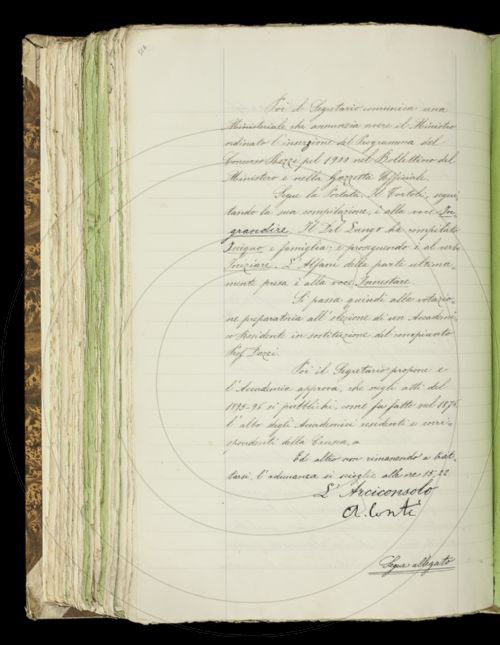 Poi il Segretario comunica una
Ministeriale che annunzia avere il Ministro
ordinato l'inserzione del Programma del
Concorso Rezzi pel 1900 nel Bollettino del
Ministero e nella Gazzetta Ufficiale.
Segue la Portata. Il Tortoli, segui-
tando la sua compilazione, è alla voce In-
grandire. Il Del Lungo ha compilato
Iniquo, e famiglia; e proseguendo è al verbo
Iniziare. L'Alfani della parte ultima-
mente presa è alla voce Innestare.
Si passa quindi alla votazio-
ne preparatoria all'elezione di un Accademi-
co Residente in sostituzione del compianto
Prof. Dazzi.
Poi il Segretario propone e
l'Accademia approva, che negli atti del
1895-96 si pubblichi, come fu fatto nel
l'albo degli Accademici residenti e corri-
spondenti della Crusca,
Ed altro non rimanendo a trat-
tarsi, l'adunanza si scioglie alle ore 15,22
L'Arciconsolo
A. Conti
Segue allegato